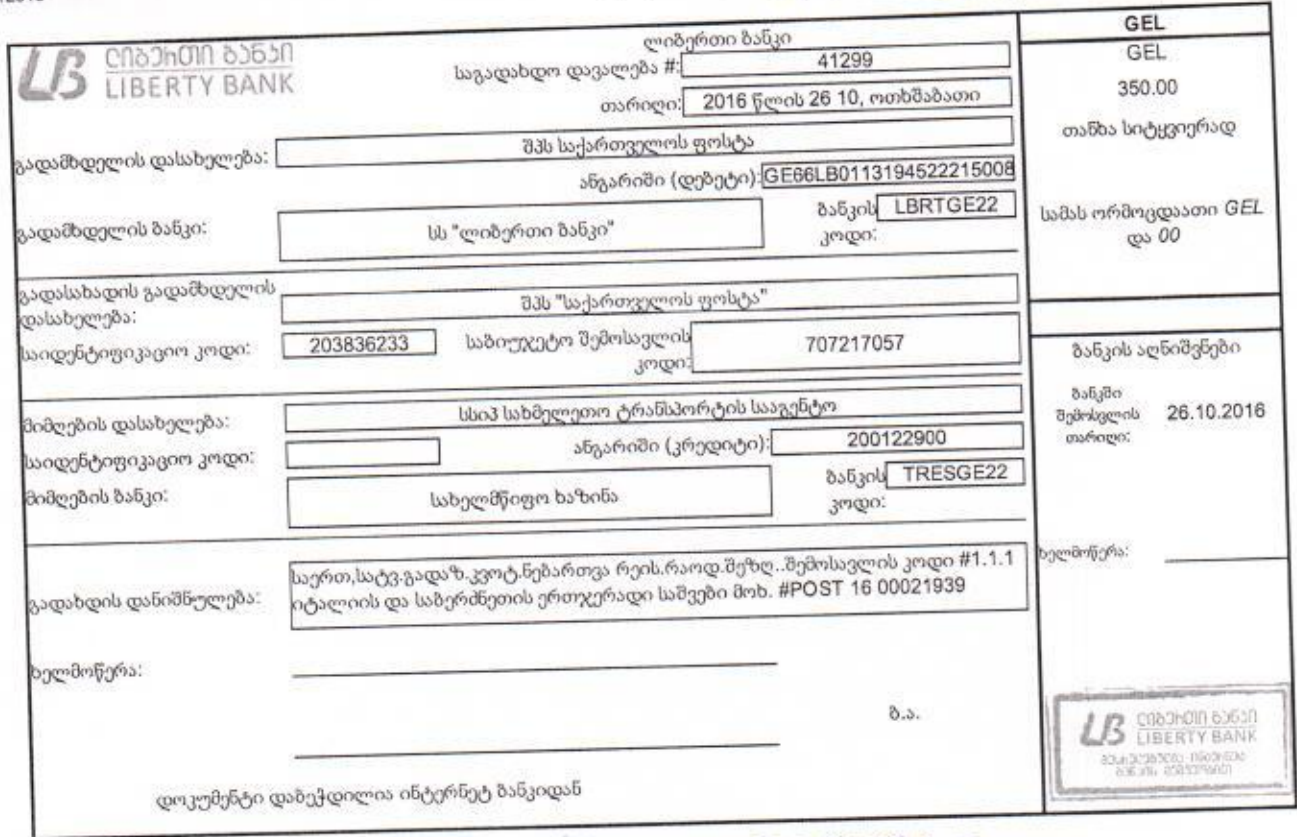 ლიბერთი ბანკი
LIBERTY BANK
ლიბერთი ბანკი
საგადახდო დავალება #: 41299
თარიღი: 2016 წლის 26 10, ოთხშაბათი
გადამხდელის დასახელება: შპს საქართველოს ფოსტა
ანგარიში (დებეტი): GE66LB0113194522215008
გადამხდელის ბანკი: სს "ლიბერთი ბანკი"
ბანკის კოდი: LBRTGE22
გადასახადის გადამხდელის დასახელება: შპს "საქართველოს ფოსტა"
საიდენტიფიკაციო კოდი: 203836233
საბიუჯეტო შემოსავლის კოდი: 707217057
მიმღების დასახელება: სსიპ სახმელეთო ტრანსპორტის სააგენტო
საიდენტიფიკაციო კოდი:
ანგარიში (კრედიტი): 200122900
მიმღების ბანკი: სახელმწიფო ხაზინა
ბანკის კოდი: TRESGE22
გადახდის დანიშნულება:
საერთ,სატვ.გადაზ.კვოტ.ნებართვა რეის.რაოდ.შეზღ..შემოსავლის კოდი #1.1.1
იტალიის და საბერძნეთის ერთჯერადი საშვები მოხ. #POST 16 00021939
ხელმოწერა:
ბ.ა.
დოკუმენტი დაბეჭდილია ინტერნეტ ბანკიდან
GEL
GEL
350.00
თანხა სიტყვიერად
სამას ორმოცდაათი GEL
და 00
ბანკის აღნიშვნები
ბანკში
შემოსვლის
თარიღი: 26.10.2016
ხელმოწერა:
ლიბერთი ბანკი
LIBERTY BANK